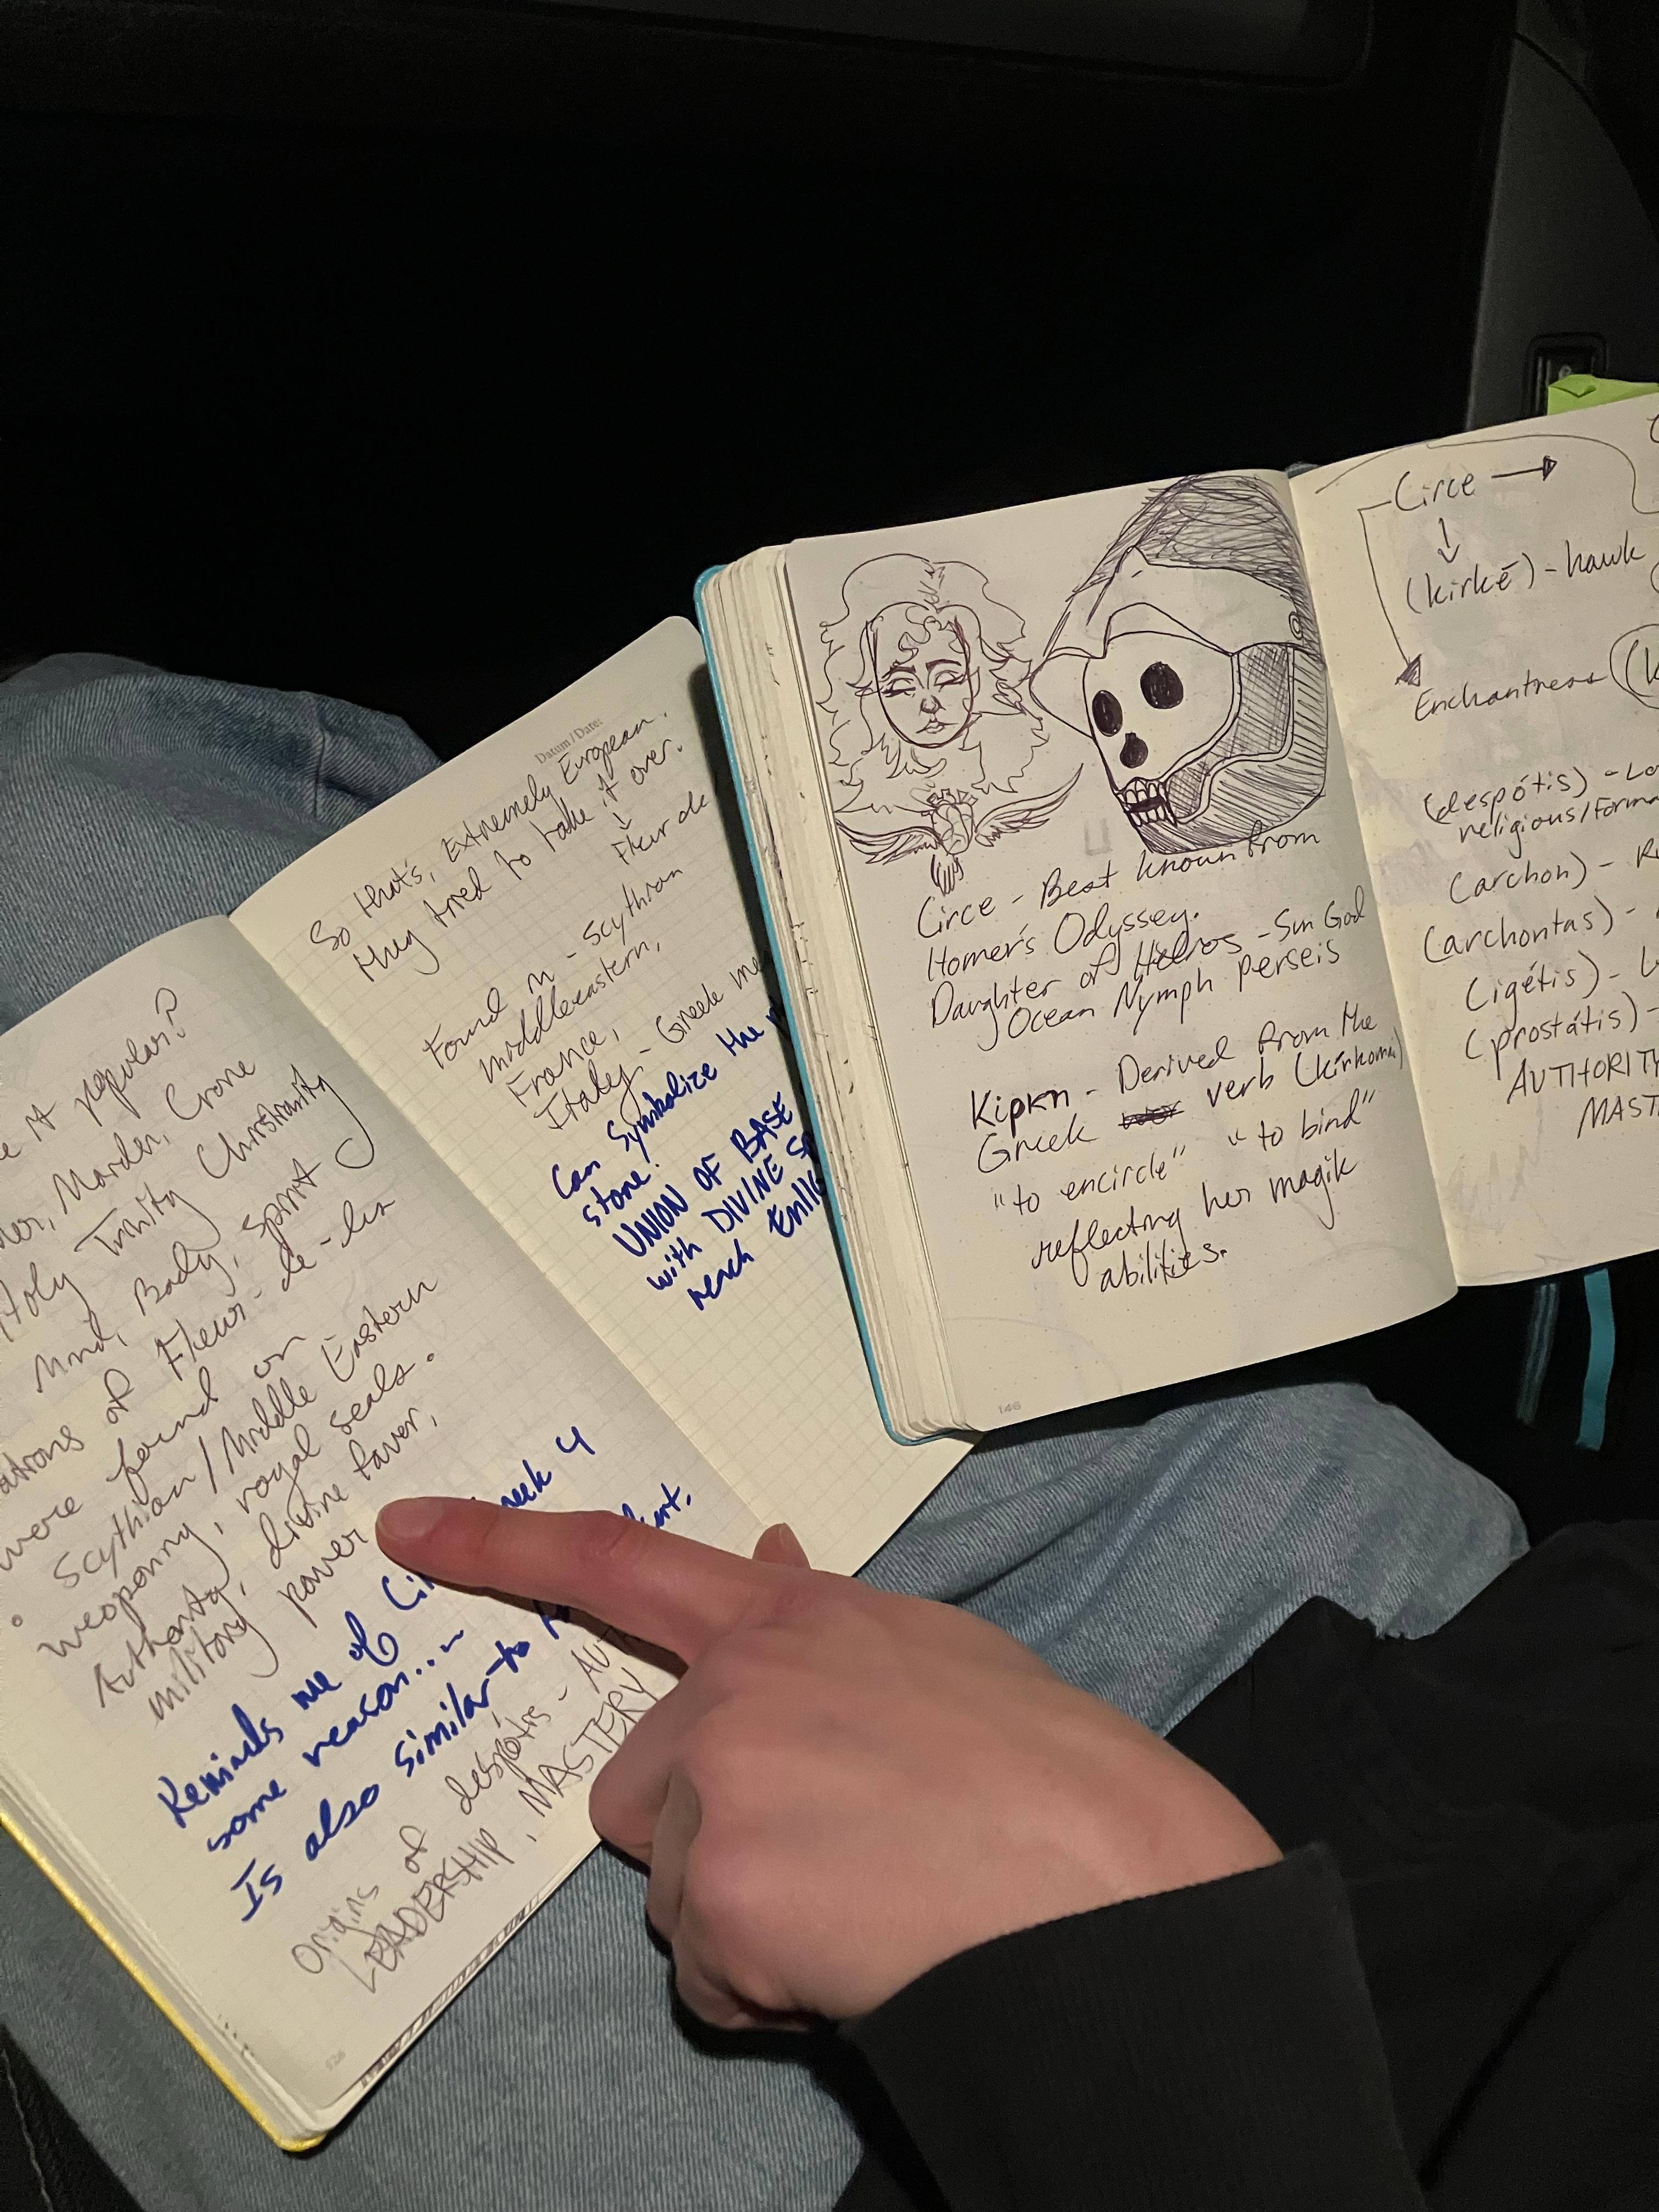 it popular?
Marder, Crone
Holy Trinity Christianity
Mind, Body, Spirit
of Fleur-de-lis
were found on
• Scythian / Middle Eastern
weaponry, royal seals.
Authority, divine favor,
military power
Reminds me of
4
some reason...
Is also similar to
Origins of despótis -
LEADERSHIP, MASTERY
Datum / Date:
So that's, Extremely European.
they tried to take it over.
↓
Fleur de
Found in - Scythian
middleeastern,
France,
Italy - Greek
Can symbolize the
stone.
UNION OF BASE
with DIVINE
reach
Circe - Best known from
Homer's Odyssey.
Daughter of Helios - Sun God
Ocean Nymph perseis
Kipkn - Derived from the
Greek verb (kirkoma)
"to encircle" "to bind"
reflecting her magik
abilities.
146
Circe →
↓
(kirkē) - hawk
Enchantress
(despótis) -
religious/
(archon) -
(archontas) -
(igétis) -
(prostátis) -
AUTHORITY